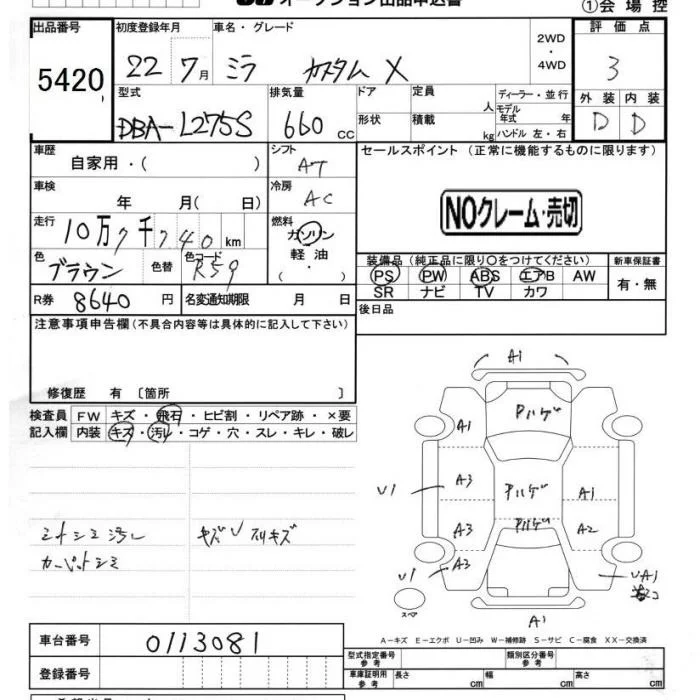 オークション出品申込書
①会場控
出品番号 初度登録年月 車名・グレード 2WD・4WD 評価点
5420 22 7月 ミラ カスタム X 3
型式 排気量 ドア 定員 人 ディーラー・並行 外装 内装
DBA-L275S 660cc 形状 積載 kg モデル年式 年 ハンドル 左・右 D D
車歴 自家用・( ) シフト AT セールスポイント(正常に機能するものに限ります)
車検 年 月( 日) 冷房 AC
NOクレーム・売切
走行 10万7千740km 燃料 ガソリン
軽油
( ・ )
装備品(純正品に限り○をつけてください) 新車保証書
色 ブラウン 色替 色コード R59
PS PW ABS エアB AW 有・無
SR ナビ TV カワ
R券 8640円 名変通知期限 月 日 後日品
注意事項申告欄(不具合内容等は具体的に記入して下さい)
修復歴 有 〔箇所 〕
検査員 FW キズ・飛石・ヒビ割・リペア跡・×要
記入欄 内装 キズ・汚レ・コゲ・穴・スレ・キレ・破レ
A1
Pハゲ
A1
U1 A3 Pハゲ A1
A3 Pハゲ A2
シートシミ汚レ
カーペットシミ
U1 A3 UA1
スペア
A1
A-キズ E-エクボ U-凹み W-補修跡 S-サビ C-腐食 XX-交換済
車台番号 0113081
型式指定番号 参考 類別区分番号 参考
登録番号 車庫証明用 参考 長さ cm 幅 cm 高さ cm